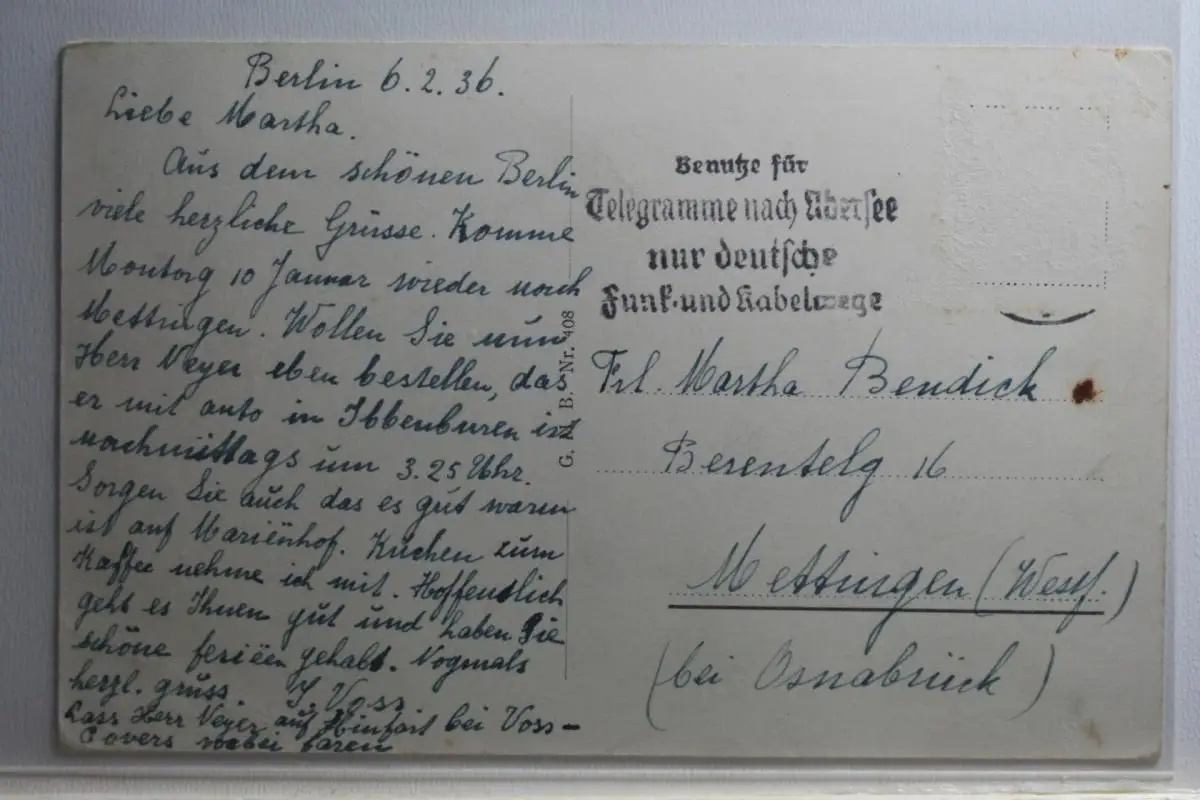 Berlin 6.2.36.
Liebe Martha.
Aus dem schönen Berlin
viele herzliche Grüsse. Komme
Montag 10 Januar wieder nach
Mettingen. Wollen Sie nun
Herr Veyer eben bestellen, das
er mit auto in Ibbenburen ist
nachmittags um 3.25 Uhr.
Sorgen Sie auch das es gut warm
ist auf Marienhof. Kuchen zum
Kaffee nehme ich mit. Hoffentlich
geht es Ihnen gut und haben Sie
schöne ferien gehabt. Nogmals
herzl. gruss. J. Voss
Lass Herr Veyer auf Hinfart bei Voss-
Covers vorbei faren
G. B. Nr. 408
Benutze für
Telegramme nach Übersee
nur deutsche
Funk- und Kabelwege
Frl. Martha Bendick
Berentelg 16
Mettingen (Westf.)
(bei Osnabrück)